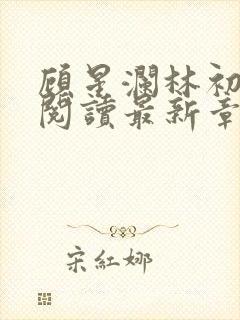 顾星瀾林初
閱讀最新章
宋紅娜